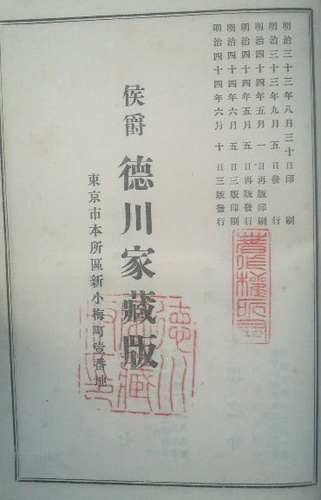 明治三十三年八月三十日印刷
明治三十三年九月五日發行
明治四十四年五月一日再版印刷
明治四十四年五月五日再版發行
明治四十四年六月五日三版印刷
明治四十四年六月十日三版發行
侯爵德川家藏版
東京市本所區新小梅町壹番地